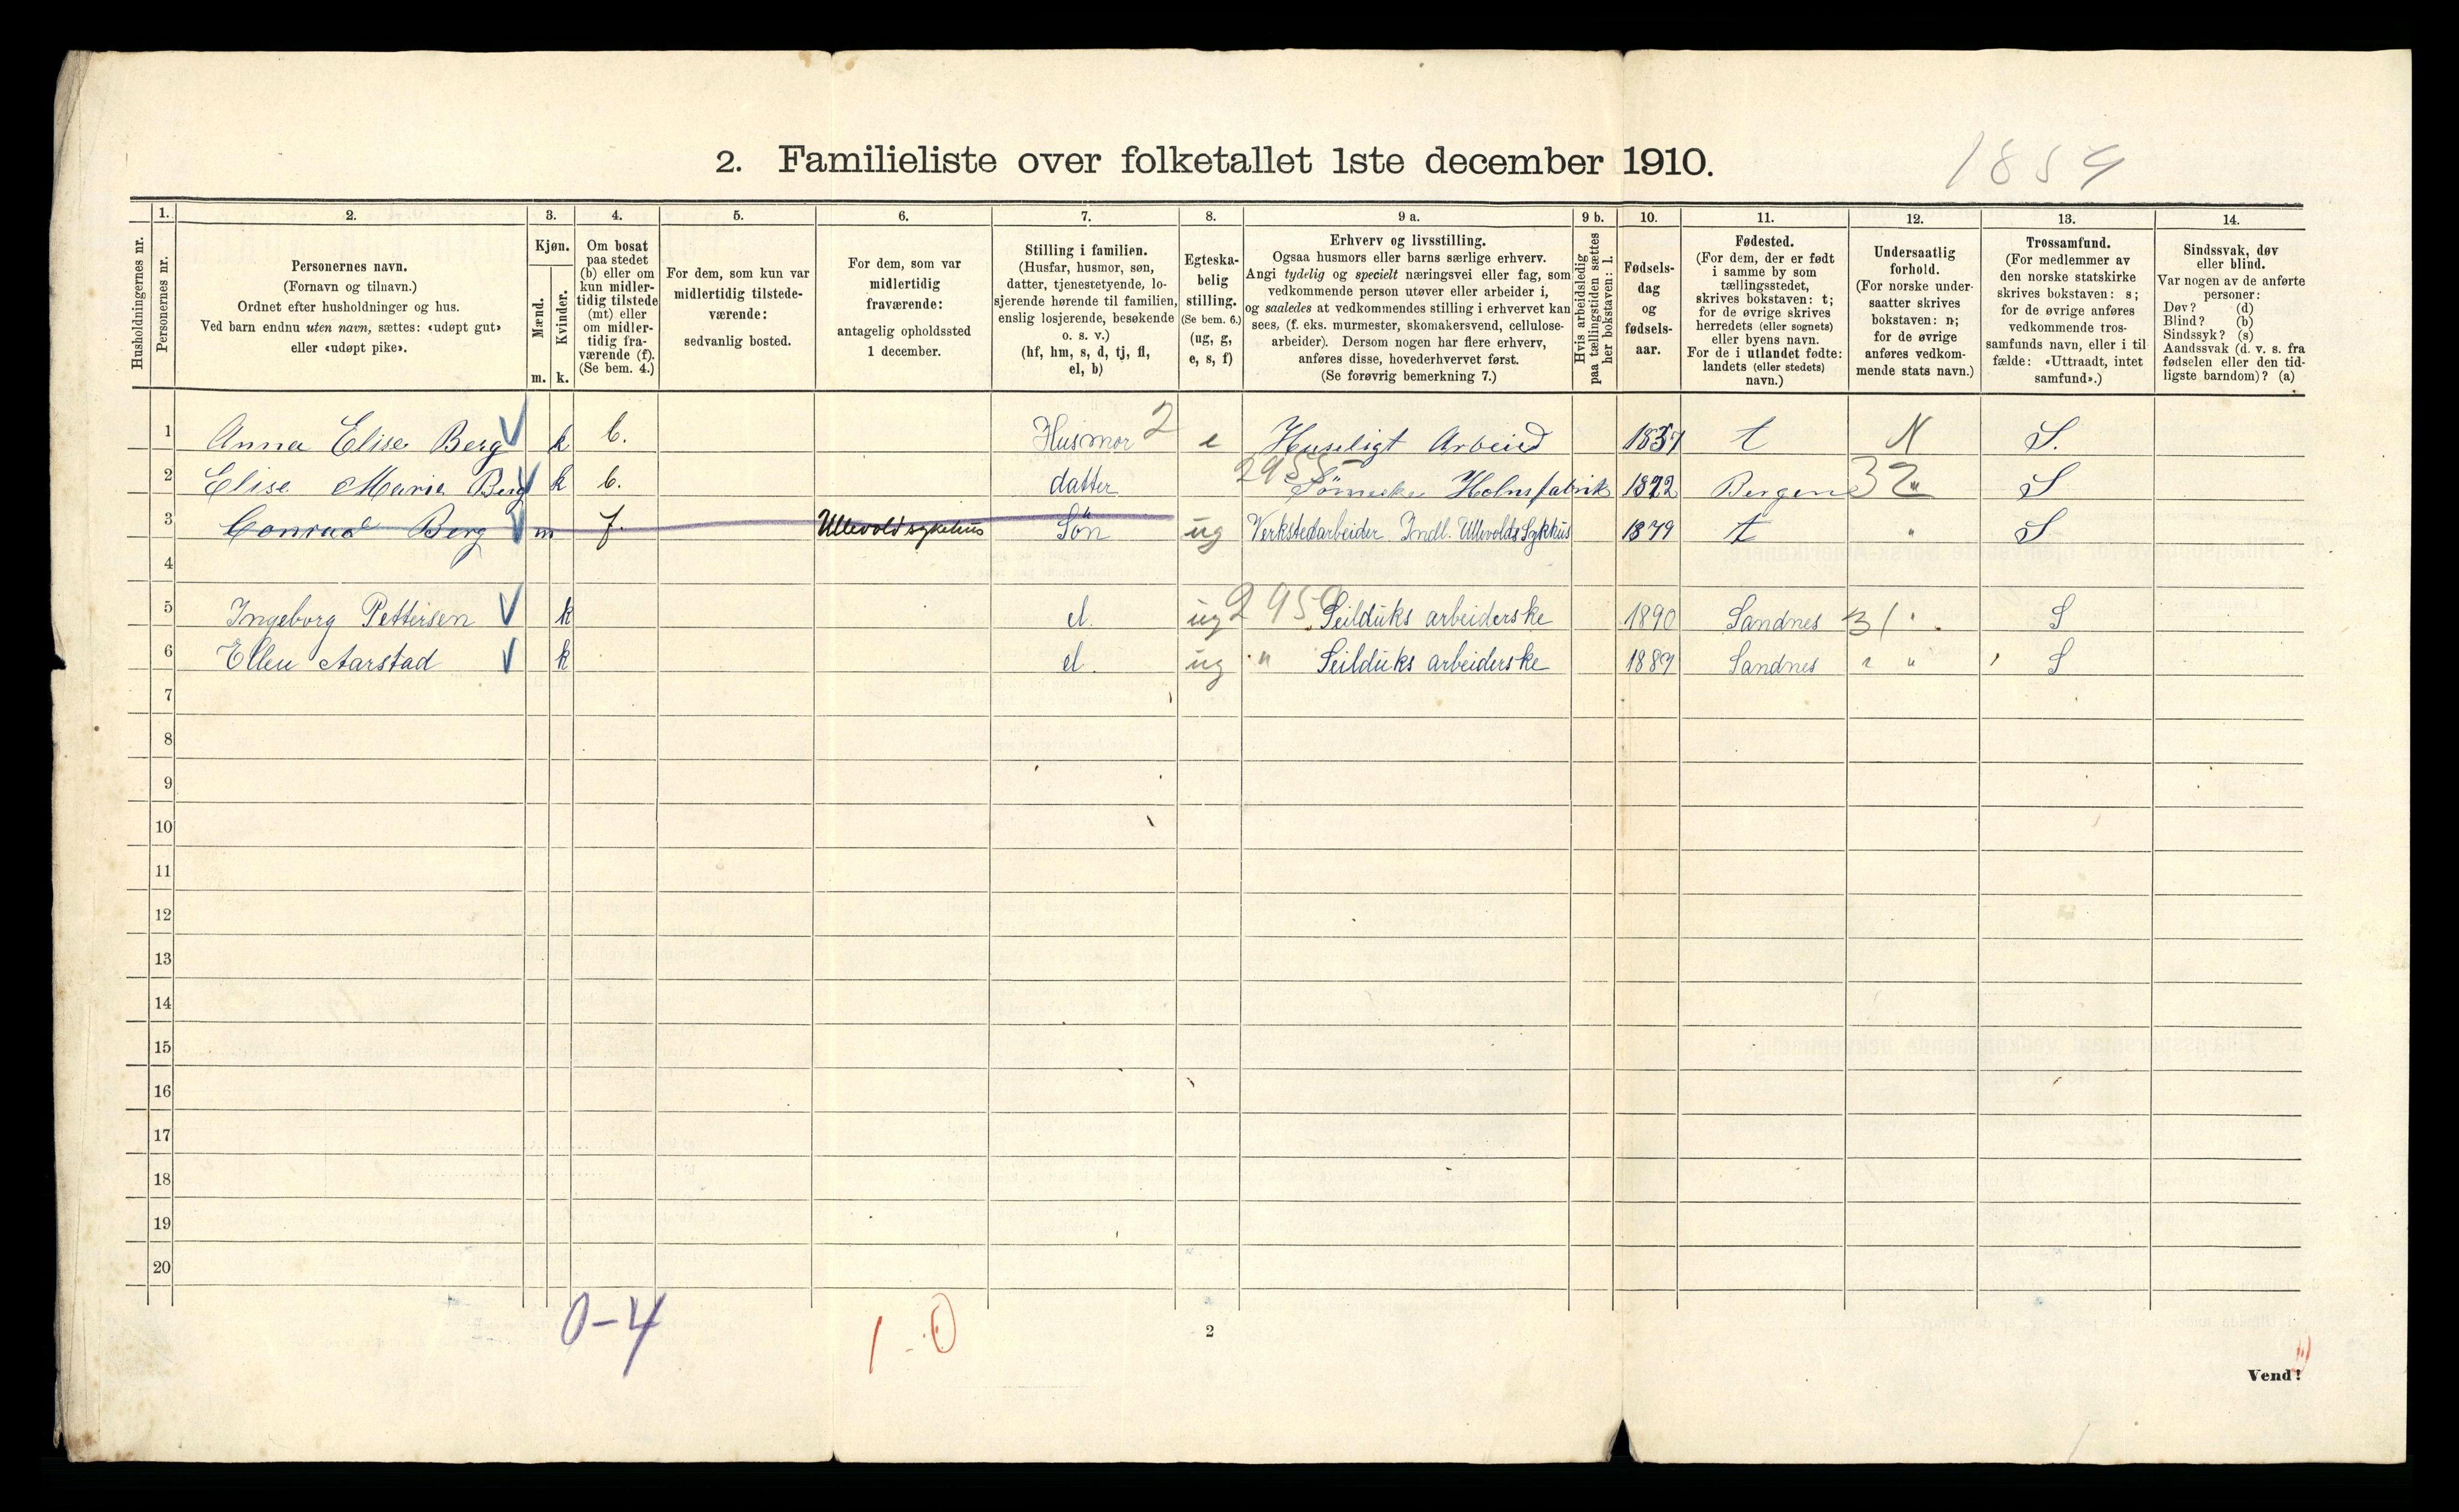 2. Familieliste over folketallet 1ste december 1910.
1. 2. 3. 4. 5. 6. 7. 8. 9 a. 9 b. 10. 11. 12. 13. 14.
Husholdningernes nr.
Personernes nr.
Personernes navn.
(Fornavn og tilnavn.)
Ordnet efter husholdninger og hus.
Ved barn endnu uten navn, sættes: «udøpt gut»
eller «udøpt pike».
Kjøn.
Mænd.
Kvinder.
m. k.
Om bosat
paa stedet
(b) eller om
kun midler-
tidig tilstede
(mt) eller
om midler-
tidig fra-
værende (f).
(Se bem. 4.)
For dem, som kun var
midlertidig tilstede-
værende:
sedvanlig bosted.
For dem, som var
midlertidig
fraværende:
antagelig opholdssted
1 december.
Stilling i familien.
(Husfar, husmor, søn,
datter, tjenestetyende, lo-
sjerende hørende til familien,
enslig losjerende, besøkende
o. s. v.)
(hf, hm, s, d, tj, fl,
el, b)
Egteska-
belig
stilling.
(Se bem. 6.)
(ug, g,
e, s, f)
Erhverv og livsstilling.
Ogsaa husmors eller barns særlige erhverv.
Angi tydelig og specielt næringsvei eller fag, som
vedkommende person utøver eller arbeider i,
og saaledes at vedkommendes stilling i erhvervet kan
sees, (f. eks. murmester, skomakersvend, cellulose-
arbeider). Dersom nogen har flere erhverv,
anføres disse, hovederhvervet først.
(Se forøvrig bemerkning 7.)
Hvis arbeidsledig
paa tællingstiden sættes
her bokstaven: l.
Fødsels-
dag
og
fødsels-
aar.
Fødested.
(For dem, der er født
i samme by som
tællingsstedet,
skrives bokstaven: t;
for de øvrige skrives
herredets (eller sognets)
eller byens navn.
For de i utlandet fødte:
landets (eller stedets)
navn.)
Undersaatlig
forhold.
(For norske under-
saatter skrives
bokstaven: n;
for de øvrige
anføres vedkom-
mende stats navn.)
Trossamfund.
(For medlemmer av
den norske statskirke
skrives bokstaven: s;
for de øvrige anføres
vedkommende tros-
samfunds navn, eller i til-
fælde: «Uttraadt, intet
samfund».)
Sindssvak, døv
eller blind.
Var nogen av de anførte
personer:
Døv? (d)
Blind? (b)
Sindssyk? (s)
Aandssvak (d. v. s. fra
fødselen eller den tid-
ligste barndom)? (a)
1 Anna Elise Berg k b. Husmor 2 e Huseligt Arbeied t N S.
2 Elise Marie Berg k b. datter 2955 Holmsfabrik Bergen 32 " S
3 Conrad Berg m f. Ullevold sykehus Sön ug Verkstedarbeider Indl. Ullevolds Sykhus 1879 t " S
4
5 Ingeborg Pettersen k el. ug Seilduks arbeiderske 1890 Sandnes 31 " S
6 Ellen Aarstad k el. ug " Seilduks arbeiderske Sandnes " " S
7
8
9
10
11
12
13
14
15
16
17
18
19
20
0-4
1-0
2
Vend!